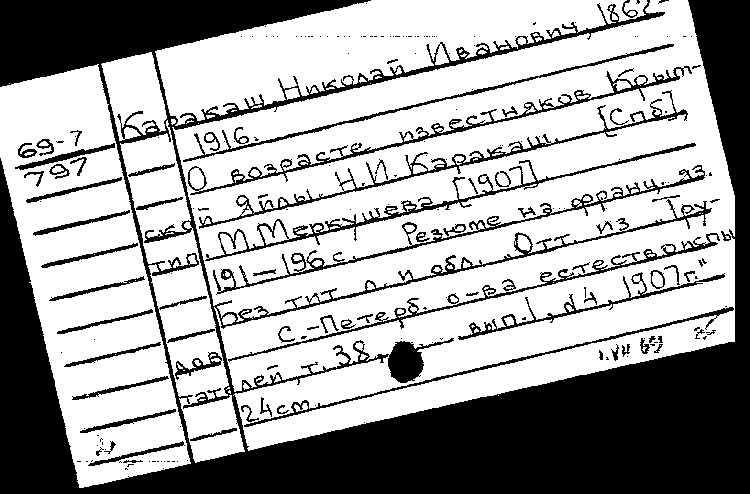 Каракаш, Николай Иванович, 1862-
69-7
797
1916.
О возрасте известняков Крым-
ской Яйлы. Н.И. Каракаш. [Спб],
тип. М. Меркушева, [1907].
191–196 с. Резюме на франц. яз.
Без тит. л. и обл. „Отт. из „Тру-
дов С.-Петерб. о-ва естествоиспы
тателей, т. 38, вып. 1, №4, 1907г."
24см.
1.VII 69